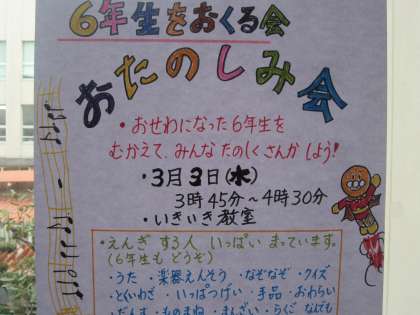 6年生をおくる会
おたのしみ会
・おせわになった6年生を
むかえて、みんなたのしくさんかしよう!
・3月3日(水)
3時45分～4時30分
・いきいき教室
・えんぎする人 いっぱい まっています。
(6年生も どうぞ)
・うた ・楽器えんそう ・なぞなぞ ・クイズ
・といわざ ・いっぱつげい ・手品 ・おわらい
・だんす ・ものまね ・まんざい ・らくご なんでも